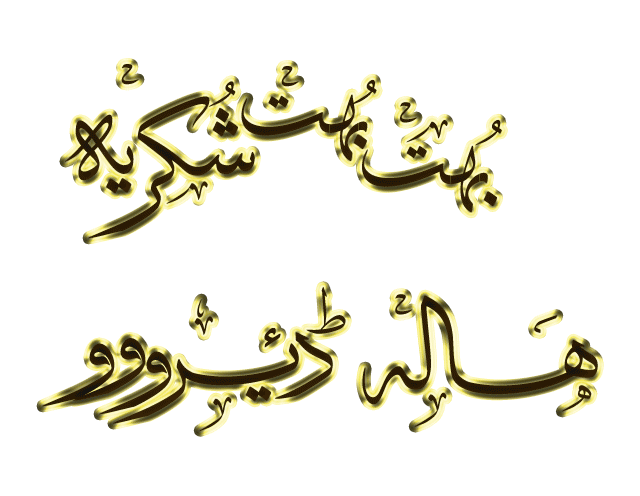 بہت بہت شکریہ
ہالہ ڈئیررووو